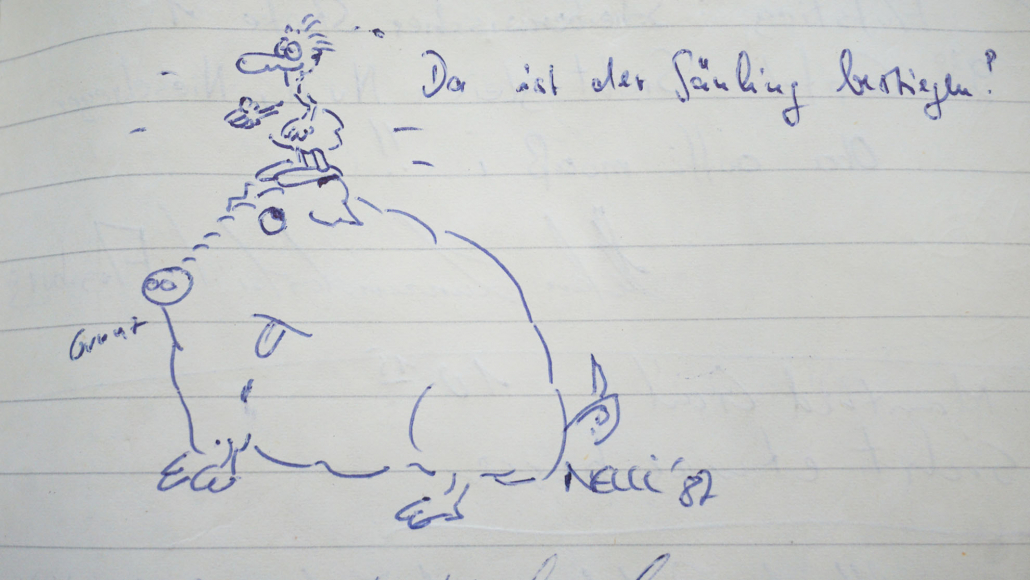 Da ist der Säuling bestiegen!
Grunz
NELLI '87